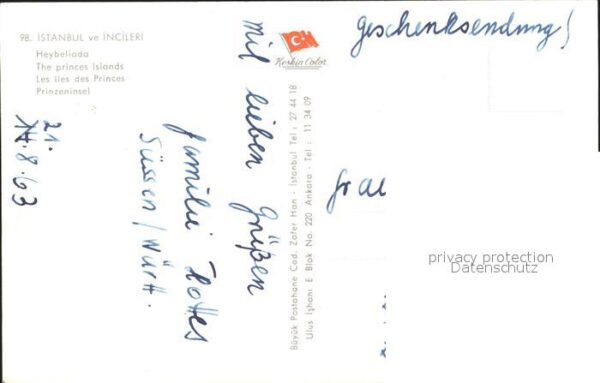 98. İSTANBUL ve İNCİLERİ
Heybeliada
The princes Islands
Les iles des Princes
Prinzeninsel
21.
14.8.63
mit lieben Grüßen
Familie
Süssen/Württ.
Keskin Color
Büyük Postahane Cad. Zafer Han - İstanbul Tel : 27 44 18
Ulus İşhanı E Blok No. 220 Ankara - Tel : 11 34 09
Geschenksendung!
privacy protection
Datenschutz